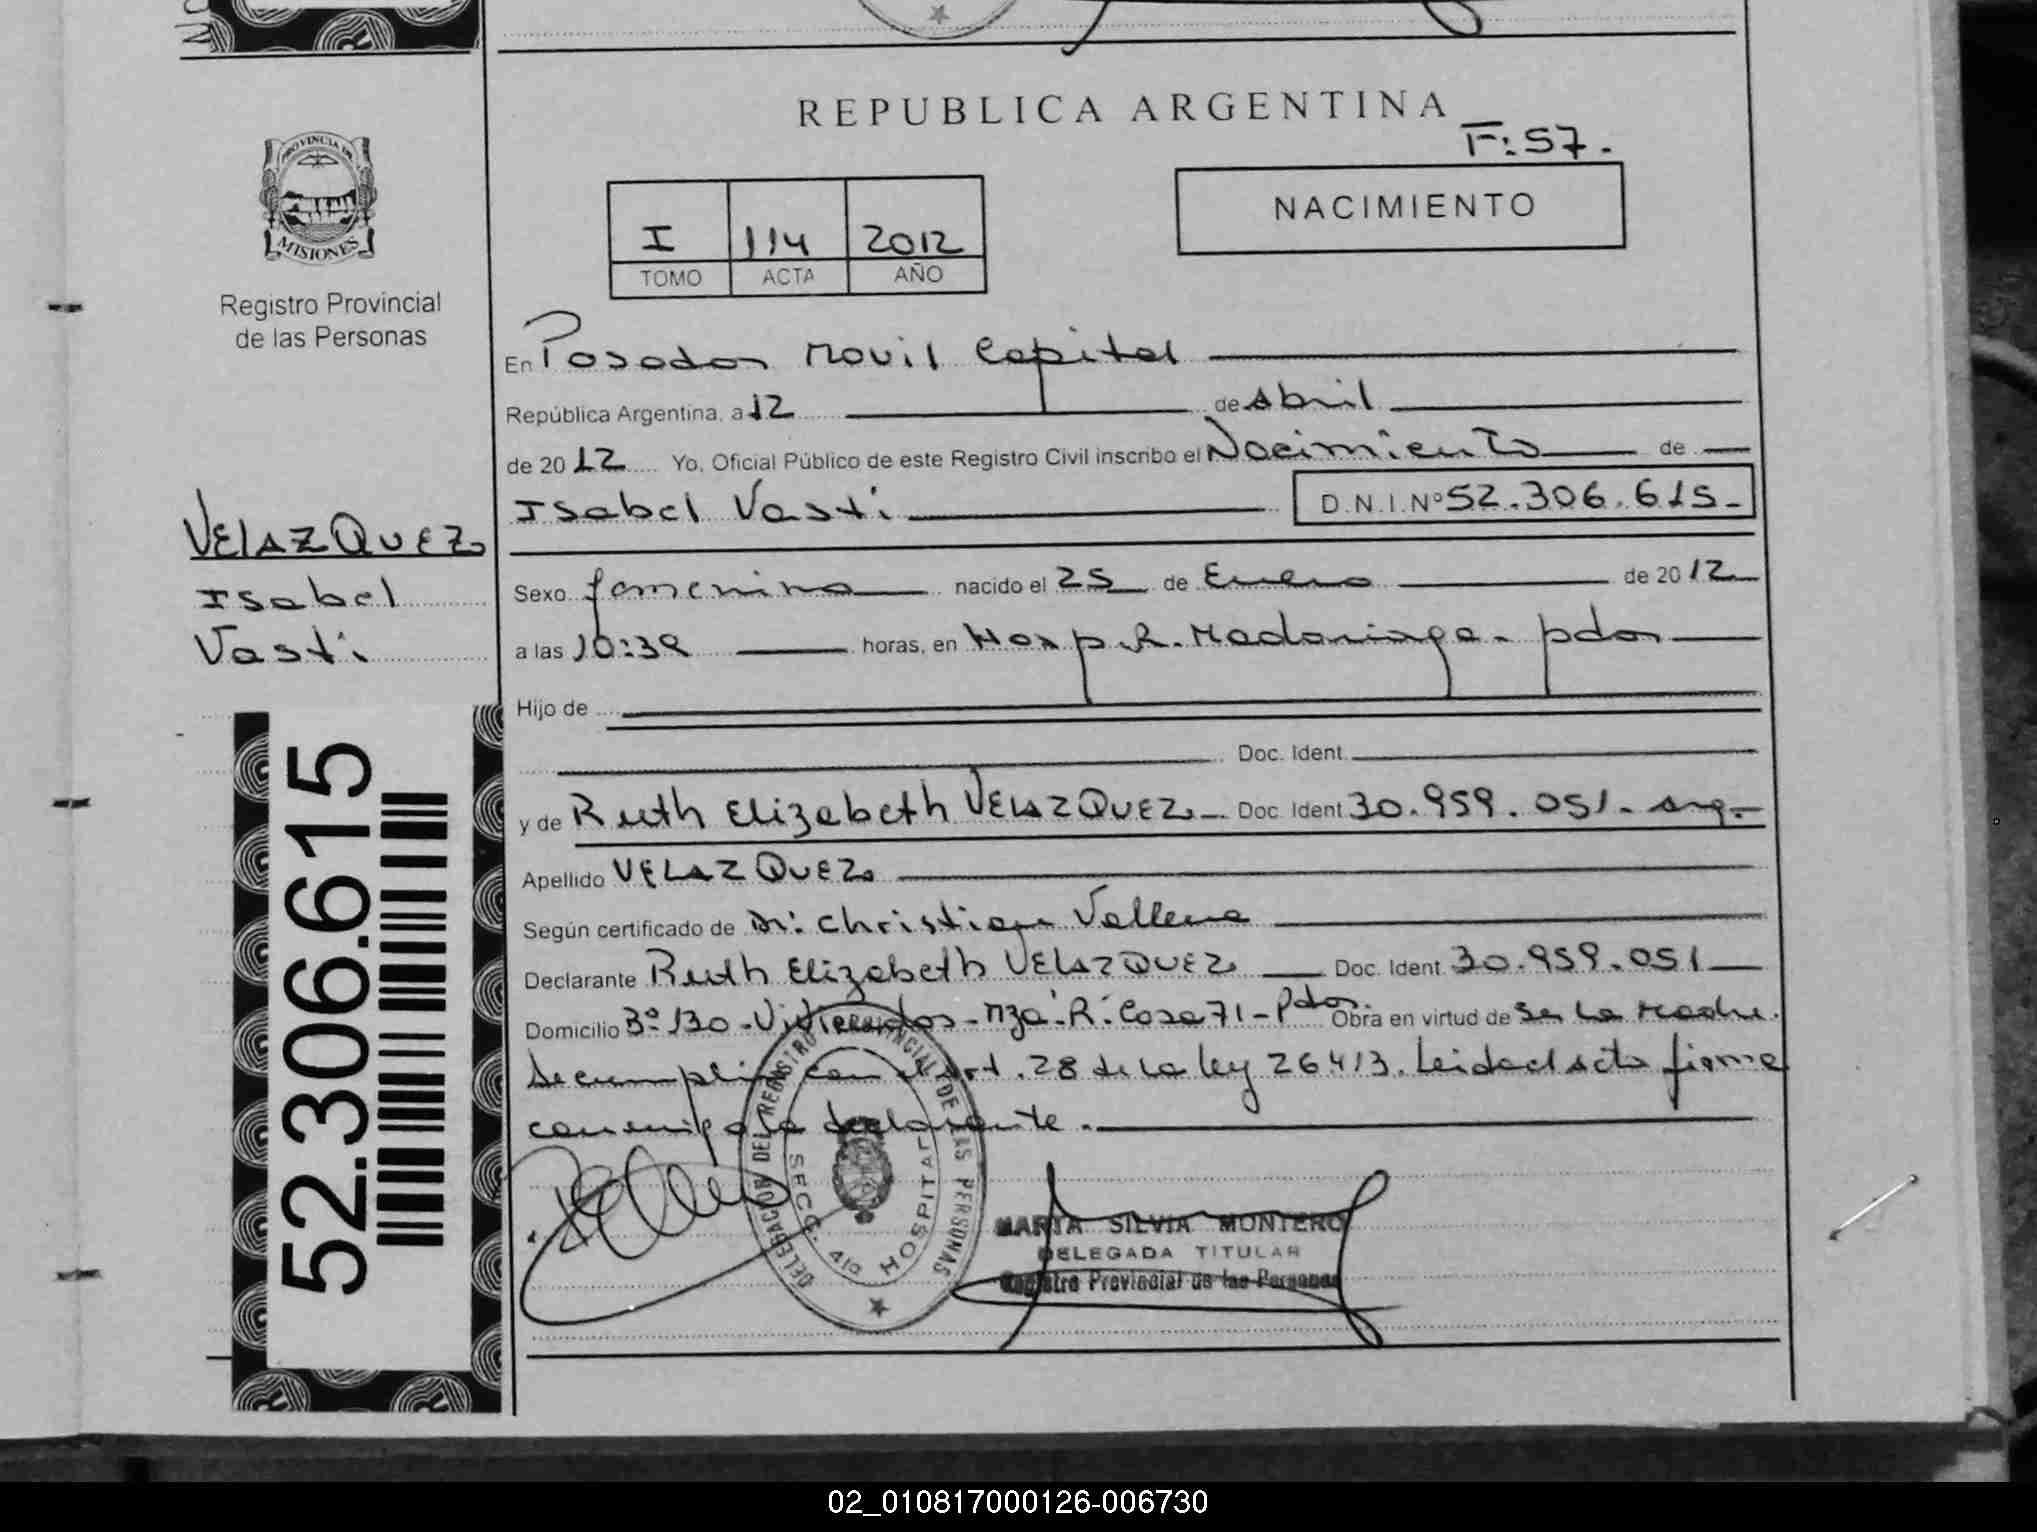 REPUBLICA ARGENTINA
F: 57.
NACIMIENTO
I 114 2012
TOMO ACTA AÑO
PROVINCIA DE
MISIONES
Registro Provincial
de las Personas
En Posadas Movil Capital
República Argentina, a 12 de Abril
de 20 12 Yo, Oficial Público de este Registro Civil inscribo el Nacimiento de
Isabel Vasti D.N.I. Nº 52.306.615-
VELAZQUEZ
Isabel
Vasti
Sexo femenino nacido el 25 de Enero de 20 12
a las 10:39 horas, en Hosp. R. Madariaga - pdas
Hijo de
Doc. Ident.
y de Ruth Elizabeth VELAZQUEZ Doc. Ident 30.959.051 - arg.
Apellido VELAZQUEZ
Según certificado de Dr: Christian
Declarante Ruth Elizabeth VELAZQUEZ Doc. Ident 30.959.051
Domicilio Bº 130 - Viviendas - Mza: R: Casa 71 - Pdas. Obra en virtud de Ser La Madre.
Se cumplió con el Art. 28 de La Ley 26413. Leida el Acta firma
conmigo la declarante.
52.306.615
DELEGACION DEL REGISTRO PROVINCIAL DE LAS PERSONAS
SECC. 4ta HOSPITAL
MARTA SILVIA MONTERO
DELEGADA TITULAR
Registro Provincial de las Personas
02_010817000126-006730